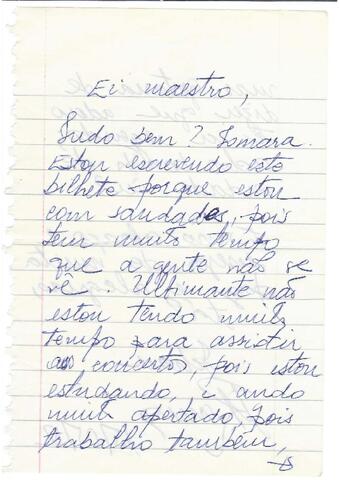 Ei maestro,
Tudo bem? Tomara.
Estou escrevendo este
bilhete porque estou
com saudades, pois
tem muito tempo
que a gente não se
vê. Ultimante não
estou tendo muito
tempo para assistir
aos concertos, pois estou
estudando, e ando
muito apertado, pois
trabalho também,